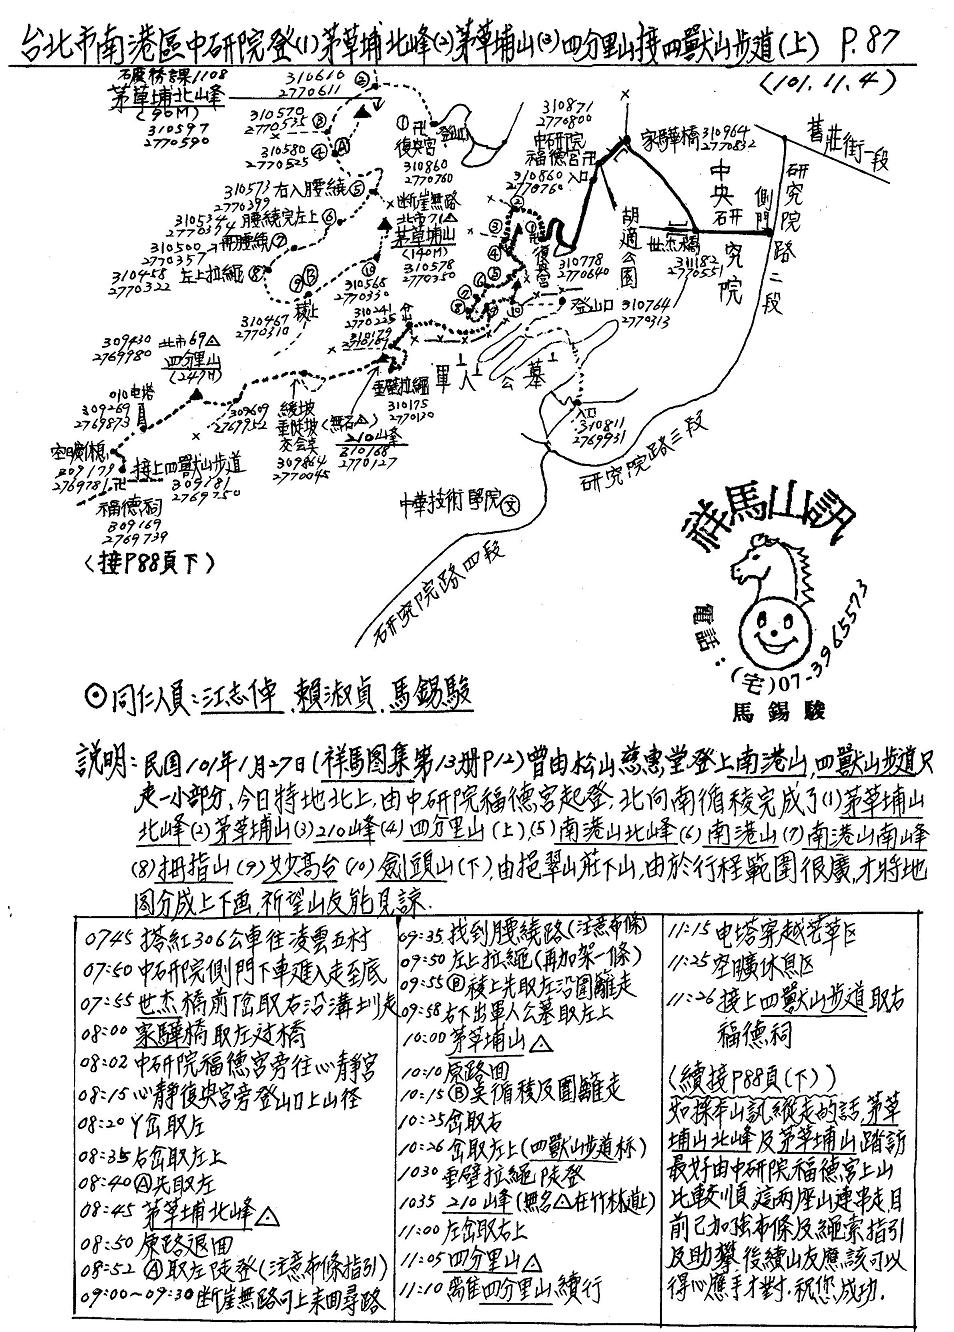 台北市南港區中研院登(1)茅草埔北峰(2)茅草埔山(3)四分里山接四獸山步道(上) P.87
(101.11.4)
石礎務課1108
茅草埔北山峰
(90M)
310597
2770590
310610
2770611
310570
2770535
310580
2770525
310573右入腰繞
2770399
310534腰繞完左上
2770374
310500再腰繞
2770357
310458左上拉繩
2770322
310467
2770310
稜上
登山口
復央宮
310860
2770760
断崖無路
北市71△
茅草埔山
(140M)
310578
2770350
310568
2770330
310241
2770225
310871
2770800
中研院
福德宮卍
310860入口
2770760
家驊橋310964
2770832
舊莊街一段
中央研究院
側門
研究院路二段
胡適公園
世杰橋
311182
2770551
310778
2770640
登山口 310764
2770313
軍人公墓
入口
310811
2769931
研究院路三段
309430 北市69△
2769980 四分里山
(247M)
010电塔
309269
2769873
309609
2769952
緩坡
垂陡坡
交會点
309864
2770045
垂壁拉繩
310175
2770130
(無名△)
210山峰
310168
2770127
309179
2769781
接上四獸山步道
309181
2769750
福德祠
309169
2769739
(接P88頁下)
中華技術學院文
研究院路四段
祥馬山訊
電話:(宅)07-3965573
馬錫駿
◎同仁人員:江志偉.賴淑貞.馬錫駿
說明:民国101年1月27日(祥馬图集第13册P12)曾由松山慈惠堂登上南港山,四獸山步道只
走一小部分,今日特地北上,由中研院福德宮起登,北向南循稜完成了(1)茅草埔山
北峰(2)茅草埔山(3)210山峰(4)四分里山(上),(5)南港山北峰(6)南港山(7)南港山南峰
(8)拇指山(9)妙高台(10)劍頭山(下),由挹翠山莊下山,由於行程範圍很廣,才將地
圖分成上下画,祈望山友能見諒.
0745 搭紅306公車往凌雲五村
07:50 中研院側門下車進入走至底
07:55 世杰橋前岔取右沿溝圳走
08:00 家驊橋取左过橋
08:02 中研院福德宮旁往心靜宮
08:15 心靜復央宮旁登山口上山徑
08:20 Y岔取左
08:35 右岔取左上
08:40 Ⓐ先取左
08:45 茅草埔北山峰△
08:50 原路退回
08:52 Ⓐ取左陡登(注意布條指引)
09:00~09:30 断崖無路可上來回尋路
09:35 找到腰繞路(注意布條)
09:50 左上拉繩(再加架一條)
09:55 Ⓑ稜上先取左沿圍籬走
09:58 右下出軍人公墓取左上
10:00 茅草埔山△
10:10 原路回
10:15 Ⓑ点循稜及圍籬走
10:25 岔取右
10:26 岔取左上(四獸山步道标)
1030 垂壁拉繩陡登
1035 210山峰(無名△在竹林道上)
11:00 左岔取右上
11:05 四分里山△
11:10 離四分里山續行
11:15 电塔穿越芒草区
11:25 空曠休息区
11:26 接上四獸山步道取右
福德祠
(續接P88頁(下))
如採本山訊縱走的話,茅草
埔山北峰及茅草埔山踏訪
最好由中研院福德宮上山
比較順,這兩座山連串走目
前已加強布條及繩索指引
及助攀,後續山友應該可以
得心應手才對.祝您成功.